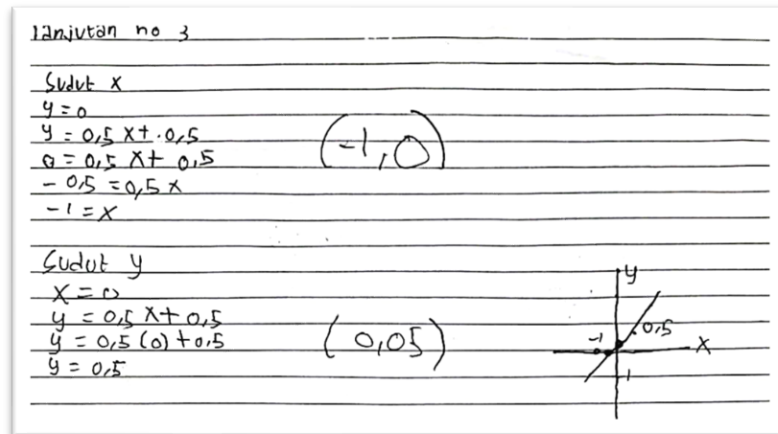 lanjutan no 3
Sudut x
y = 0
y = 0,5 x + 0,5
0 = 0,5 x + 0,5
- 0,5 = 0,5 x
-1 = x
(-1, 0)
Sudut y
x = 0
y = 0,5 x + 0,5
y = 0,5 (0) + 0,5
y = 0,5
(0,05)
y
0,5
-1
x